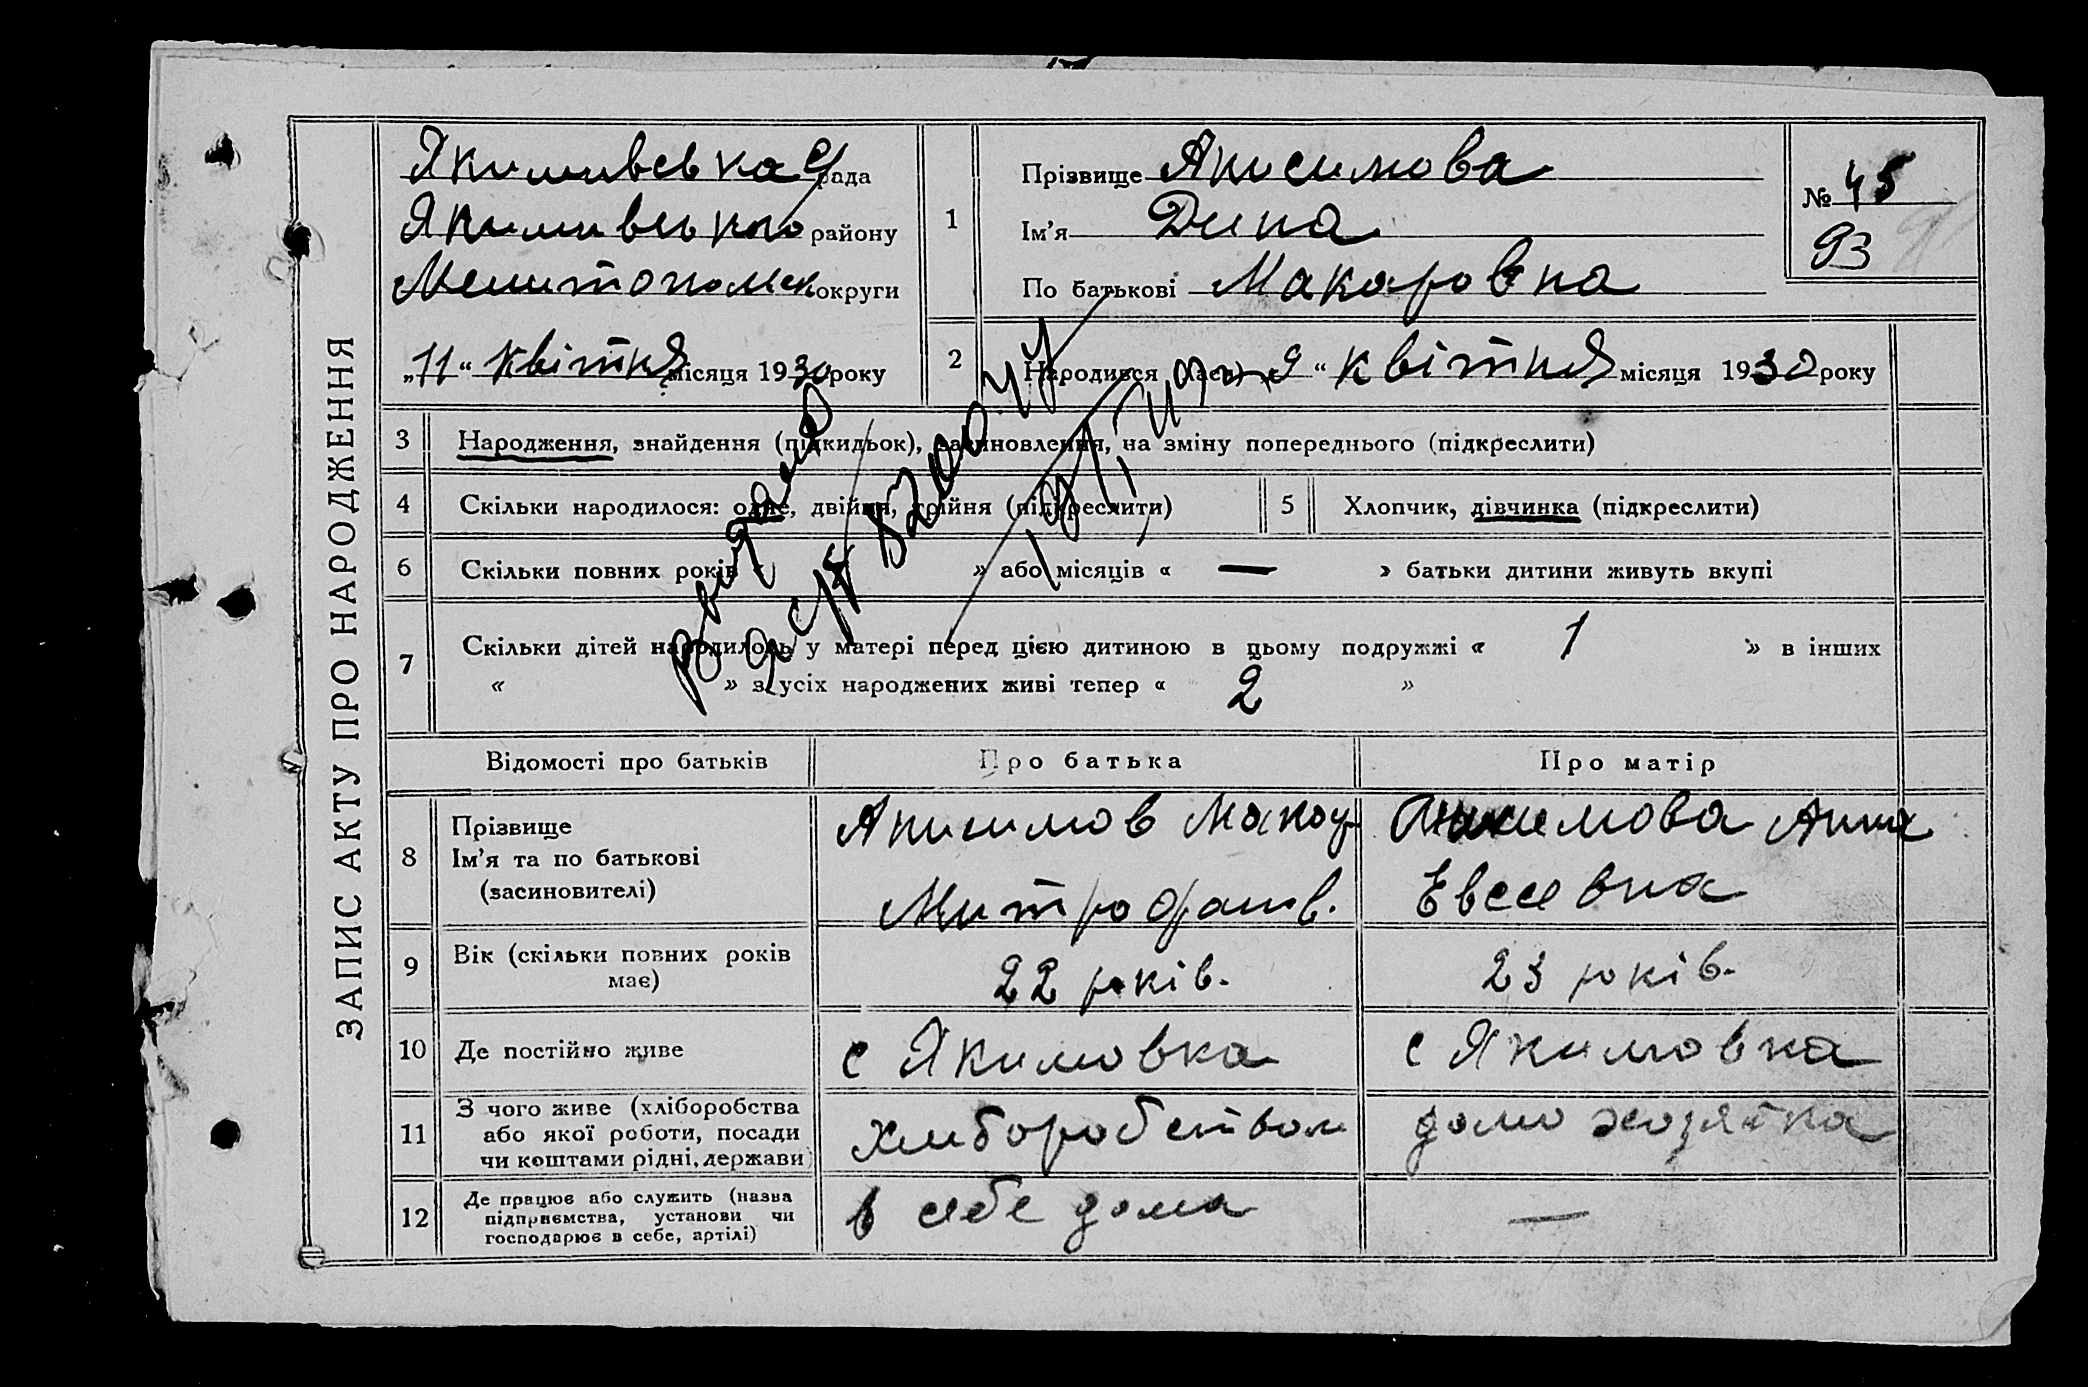 ЗАПИС АКТУ ПРО НАРОДЖЕННЯ
Якимивська с/рада
Якимивського району
Мелитопольск округи
„11“ квітня місяця 1930 року
1
Прізвище Анисимова
Ім’я Дина
По батькові Макаровна
№ 45
93
2
Народився (лася) „9“ квітня місяця 1930 року
3 Народження, знайдення (підкидьок), засиновлення, на зміну попереднього (підкреслити)
4 Скільки народилося: одне, двійня, трійня (підкреслити)
5 Хлопчик, дівчинка (підкреслити)
6 Скільки повних років « » або місяців « — » батьки дитини живуть вкупі
7 Скільки дітей народилось у матері перед цією дитиною в цьому подружжі « 1 » в інших
« » з усіх народжених живі тепер « 2 »
Видано
Відомості про батьків Про батька Про матір
8 Прізвище
Ім’я та по батькові
(засиновителі)
Анисимов Макар
Митрофанов.
Анисимова Анна
Евсеевна
9 Вік (скільки повних років
має)
22 років.
23 років.
10 Де постійно живе
с Якимовка
с Якимовка
11 З чого живе (хліборобства
або якої роботи, посади
чи коштами рідні, держави)
хлиборобством
домохозяйка
12 Де працює або служить (назва
підприємства, установи чи
господарює в себе, артілі)
в себе дома
—